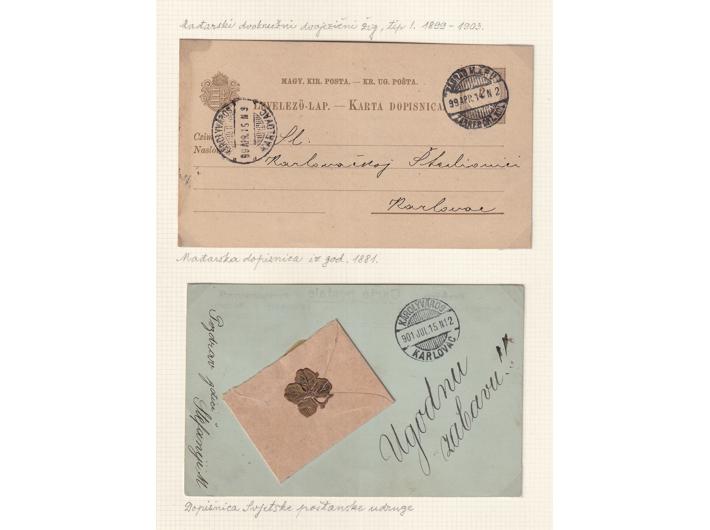 Mađarski dvokružni dvojezični žig, tip I. 1899-1903.
MAGY. KIR. POSTA. — KR. UG. POŠTA.
LEVELEZŐ-LAP. — KARTA DOPISNICA
99 APR. 14. N 2
KÁROLYVÁROS
99 APR. 15. N 9
KARLOVAC
Sl.
Naslov
Karlovačkoj Štedionici
Karlovac
Mađarska dopisnica iz god. 1881.
KÁROLYVÁROS
901 JUL. 15. N12
KARLOVAC
Ugodnu
zabavu!
Pozdrav gdici
Dopisnica Svjetske poštanske udruge